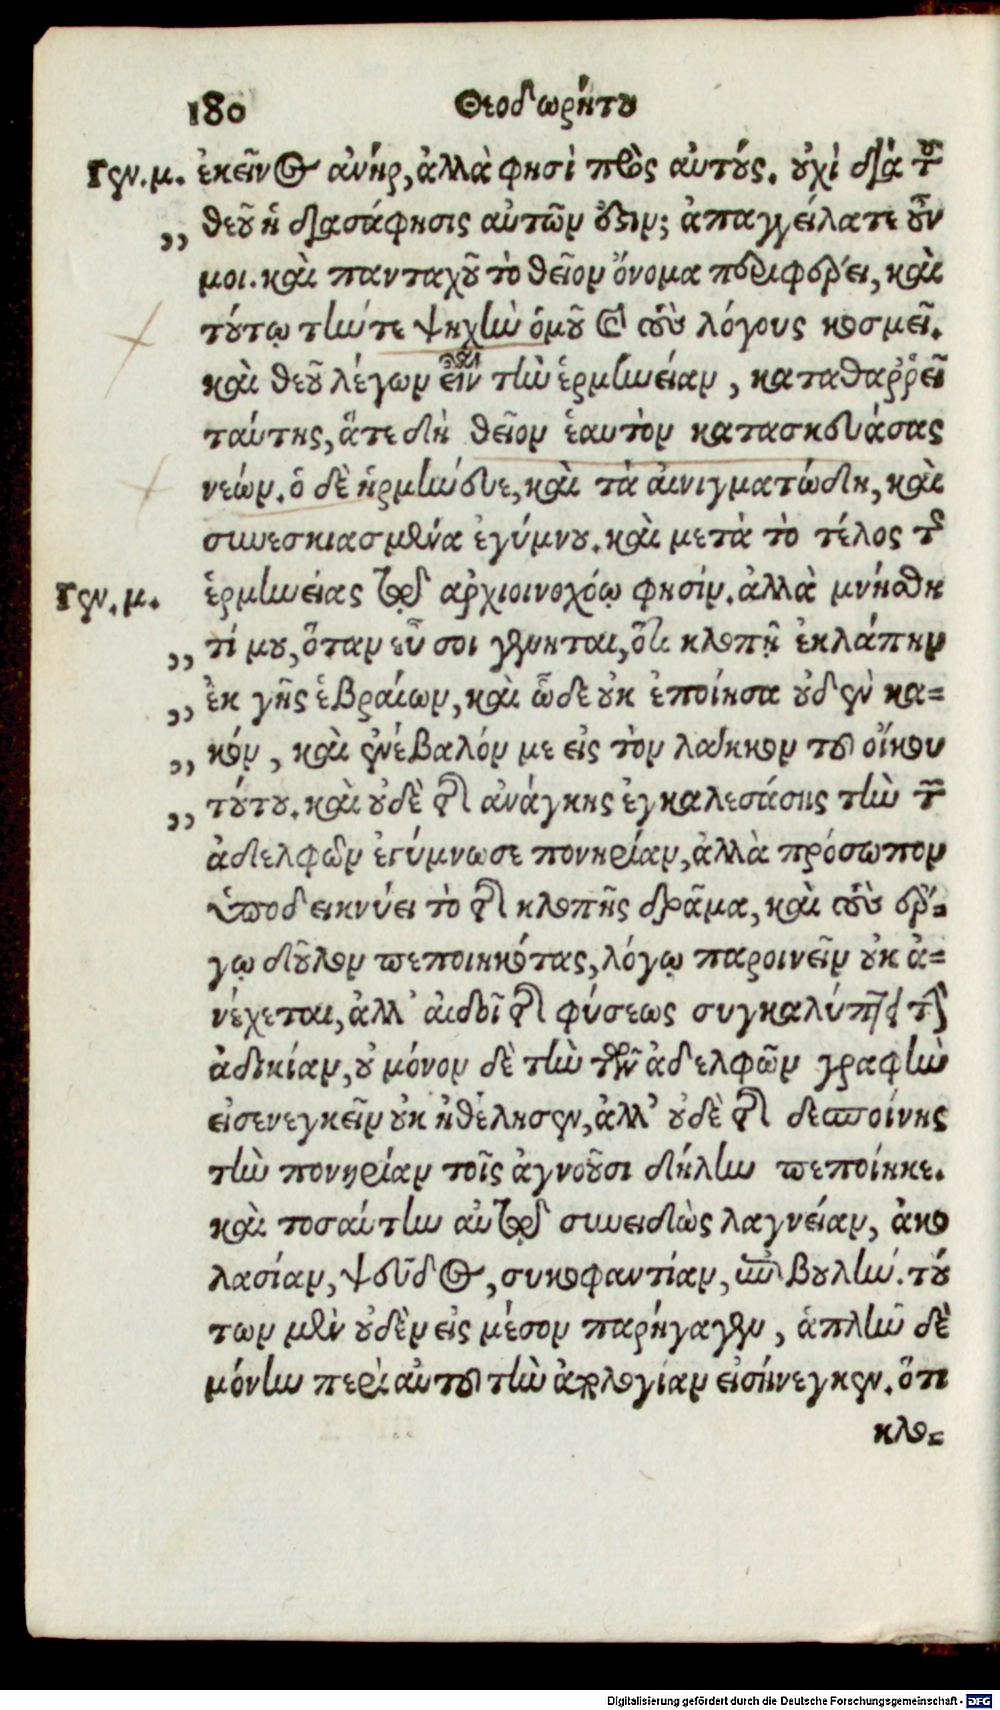 180 Θεοδωρήτου
Γεν. μ. ἐκεῖνος ἀνήρ, ἀλλὰ φησὶ πρὸς αὐτούς. οὐχὶ διὰ τοῦ
,, θεοῦ ἡ διασάφησις αὐτῶν ἐστιν; ἀπαγγείλατε οὖν
μοι. καὶ πανταχοῦ τὸ θεῖον ὄνομα περιφέρει, καὶ
τούτῳ τὴν τε ψυχὴν ὁμοῦ καὶ τοὺς λόγους κοσμεῖ.
καὶ θεοῦ λέγων εἶναι τὴν ἑρμηνείαν, καταθαῤῥεῖ
ταύτης, ἅτε δὴ θεῖον ἑαυτὸν κατασκευάσας
νεών. ὁ δὲ ἡρμήνευε, καὶ τὰ αἰνιγματώδη, καὶ
συνεσκιασμένα ἐγύμνου. καὶ μετὰ τὸ τέλος τῆς
Γεν. μ. ἑρμηνείας τῷ ἀρχιοινοχόῳ φησίν. ἀλλὰ μνήσθη
,, τί μου, ὅταν εὖ σοι γένηται, ὅτι κλοπῇ ἐκλάπην
,, ἐκ γῆς ἑβραίων, καὶ ὧδε οὐκ ἐποίησα οὐδὲν κα-
,, κόν, καὶ ἐνέβαλόν με εἰς τὸν λάκκον τοῦ οἴκου
,, τούτου. καὶ οὐδὲ τῆς ἀνάγκης ἐγκαλεσάσης τὴν τῶν
ἀδελφῶν ἐγύμνωσε πονηρίαν, ἀλλὰ πρόσωπον
ὑποδεικνύει τὸ τῆς κλοπῆς δρᾶμα, καὶ τοὺς ἔρ-
γῳ δοῦλον πεποιηκότας, λόγῳ παροινεῖν οὐκ ἀ-
νέχεται, ἀλλ' αἰδοῖ τῆς φύσεως συγκαλύπτει τὴν
ἀδικίαν, οὐ μόνον δὲ τὴν τῶν ἀδελφῶν γραφὴν
εἰσενεγκεῖν οὐκ ἠθέλησεν, ἀλλ' οὐδὲ τῆς δεσποίνης
τὴν πονηρίαν τοῖς ἀγνοοῦσι δήλην πεποίηκε.
καὶ τοσαύτην αὐτῷ συνειδὼς λαγνείαν, ἀκο
λασίαν, ψεῦδος, συκοφαντίαν, ἐπιβουλήν. τού
των μὲν οὐδὲν εἰς μέσον παρήγαγεν, ἁπλῆν δὲ
μόνην περὶ αὐτοῦ τὴν ἀπολογίαν εἰσήνεγκεν. ὅτι
κλο-
Digitalisierung gefördert durch die Deutsche Forschungsgemeinschaft - DFG